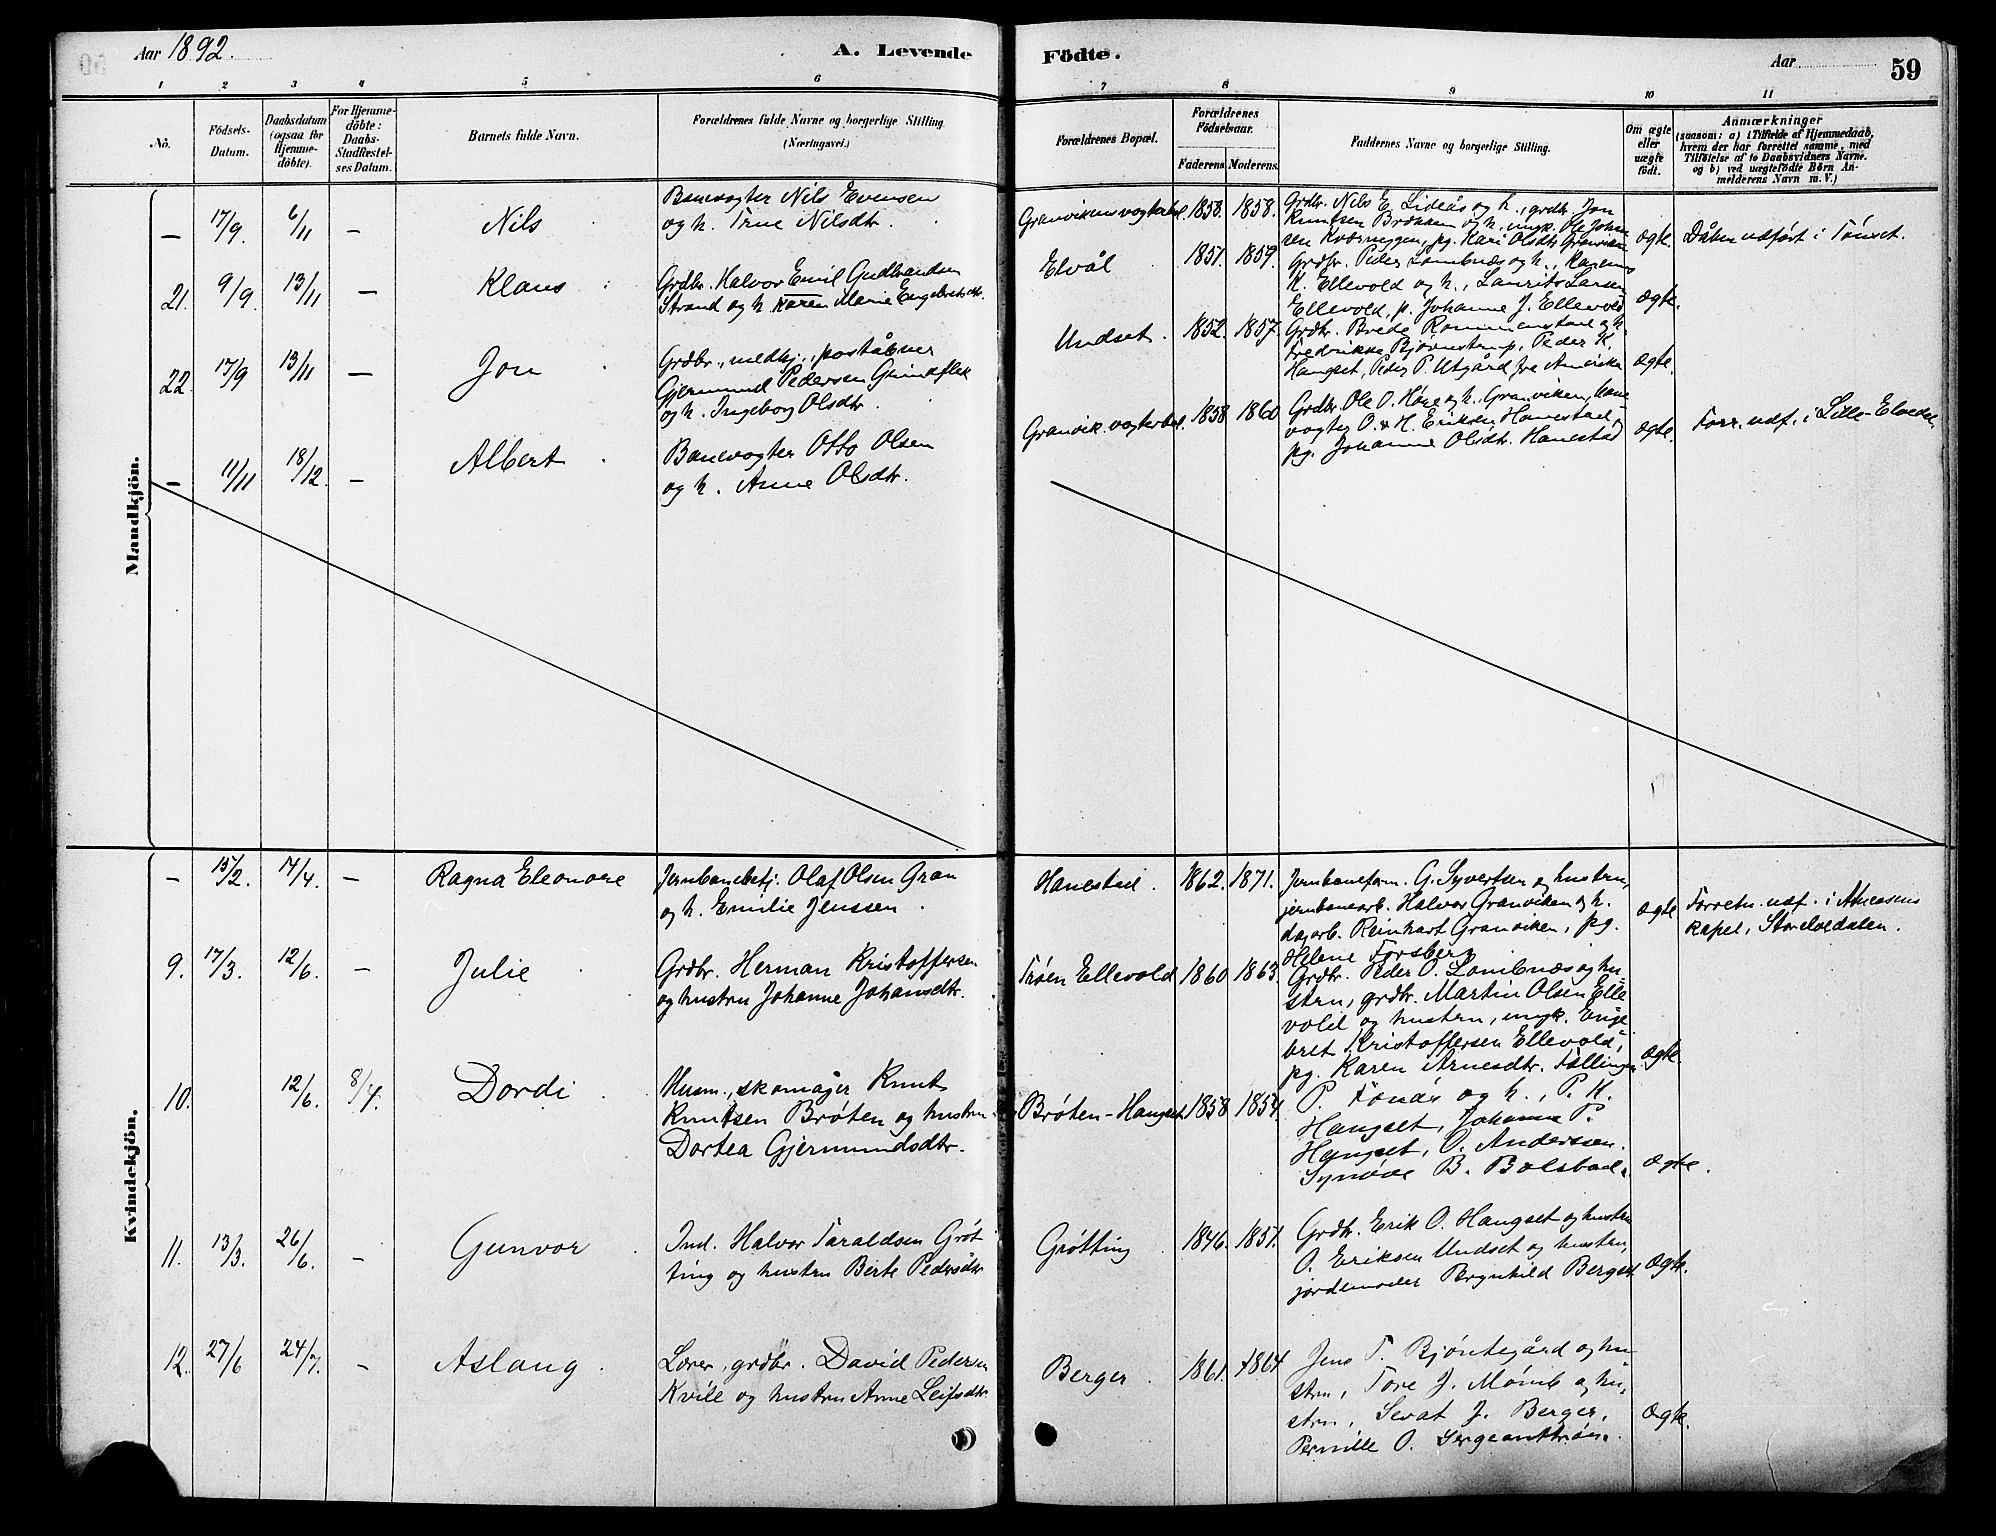 Aar 1892.
A. Levende
Födte.
Aar
59
1 2 3 4 5 6 7 8 9 10 11
No.
Födsels-
Datum.
Daabsdatum
(ogsaa for
Hjemme-
döbte).
For Hjemme-
döbte:
Daabs-
Stadfæstel-
ses Datum.
Barnets fulde Navn.
Forældrenes fulde Navne og borgerlige Stilling.
(Næringsvei.)
Forældrenes Bopæl.
Forældrenes
Födselsaar.
Faderens Moderens.
Faddernes Navne og borgerlige Stilling.
Om ægte
eller
uægte
födt.
Anmærkninger
(saasom: a) i Tilfælde af Hjemmedaab,
hvem der har forrettet samme, med
Tilföielse af to Daabsvidners Navne.
og b) ved uægtefödte Börn An-
melderens Navn m. V.)
Mandkjön.
— 17/9. 6/11 — Nils
Banevogter Nils Evensen
og h. Trine Nilsdtr.
Granvikens vogterbol. 1853. 1858.
Grdbr. Nils E. Lideås og h., grdbr. Jon
Knutsen Brækken og h., ungk. Ole Johan
sen Kværnyggen, pg. Kari Olsdtr. Granviken
ægte. Dåben udført i Tönset.
21. 9/9. 13/11 — Klaus
Grdbr. Halvor Emil Gudbrandsen
Strand og h. Karen Marie Engebretsdtr.
Elvål 1851. 1859.
Grdbr. Peder Lombnæs og h.,
K. Ellevold og h., Laurits Larsen
Ellevold, p. Johanne J. Ellevold
ægte.
22 17/9 13/11 — Jon
Grdbr., medhj., poståbner
Gjermund Pedersen
og h. Ingeborg Olsdtr.
Undset. 1852. 1857.
Grdbr. Brede Rommenstad og h.
Fredrikke Bjørnstrup, Peder K.
Hangset, Peder P. Utgård fra Amerika
ægte.
— 11/11 18/12. — Albert
Banevogter Otto Olsen
og h. Anne Olsdtr.
Granvik. vogterbol. 1858 1860
Grdbr. Ole O. Høye og h., Granviken, bane
vogter O. H. Eriksen Hanestad,
pg. Johanne Olsdtr. Hanestad
ægte. Forr. udf. i Lille-Elvedal
Kvindekjön.
— 15/2. 17/4. — Ragna Eleonore
Jernbanebetj. Olaf Olsen Gran
og h. Emilie Jenssen
Hanestad. 1862. 1871.
Jernbaneform. G. Syvertsen og hustru,
jernbanearb. Halvor Granviken og h.
dagarb. Reinhart Granviken, pg.
Helene Forsberg
ægte Forretn. udf. i Atneosens
kapel, Storelvedalen.
9. 17/3. 12/6. — Julie
Grdbr. Herman Kristoffersen
og hustru Johanne Johansdtr.
Trøen Ellevold 1860 1863.
Grdbr. Peder O. Lombnæs og hu
stru, grdbr. Martin Olsen Elle
vold og hustru, ungk. Enge
bret Kristoffersen Ellevold,
pg. Karen Arnesdtr. Fællingen
ægte.
10. 12/6. 8/4. Dordi
Husm., skomager Knut
Knutsen Brøten og hustru
Dortea Gjermundsdtr.
Brøten-Hangset 1858 1854.
P. Fonås og h., P. K.
Hangset, Johanne P.
Hangset, O. Anderssen.
Synøve B. Bolstad.
ægte.
11. 13/3. 26/6. — Gunvor
Ind. Halvor Taraldsen Grøt
ting og hustru Berte Pedersdtr
Grøtting 1846. 1851.
Grdbr. Erik O. Hangset og hustru
O. Eriksen Undset og hustru,
jordemoder Brynhild Berget
ægte.
12. 27/6 24/7. — Aslaug
Lærer, grdbr. David Pedersen
Kville og hustru Anne Leifsdtr.
Berger 1861. 1864
Jens T. Bjöntegård og hu
stru, Tore J. Momb og hu,
stru, Sevat J. Berger,
Pernille O. Sergeanttrøen.
ægte.